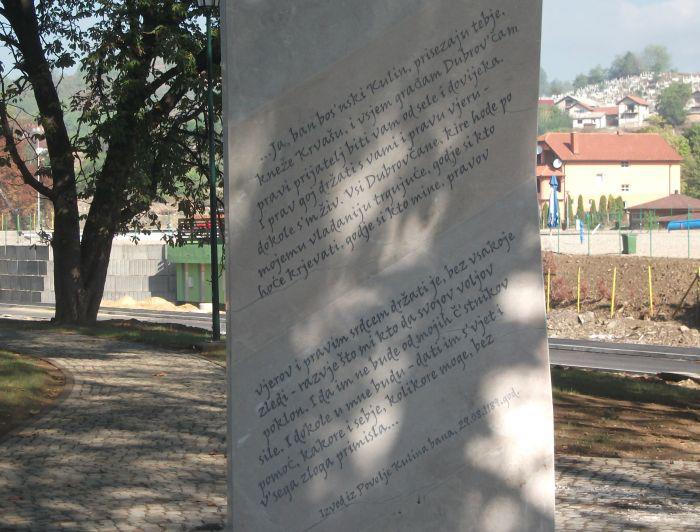 ...Ja, ban bos'nski Kulin, prisezaju tebje,
kneže Krvašu, i vsjem građam Dubrov'čam
pravi prijatelj biti vam od sele i dovijeka.
I prav goj držati s vami i pravu vjeru -
dokole s'm živ. Vsi Dubrovčane, kire hode po
mojemu vladaniju trgujuće, godje si kto
hoće krjevati, godje si kto mine, pravov
vjerov i pravim srdcem držati je, bez vsakoje
zledi - razvje što mi kto da svojov voljov
poklon. I da im ne bude od mojih č'stnikov
sile. I dokole u mne budu - dati im s'vjet i
pomoć, kakore i sebje, kolikore moge, bez
v'sega zloga primisla...
Izvod iz Povelje Kulina bana, 29.08.1189.god.